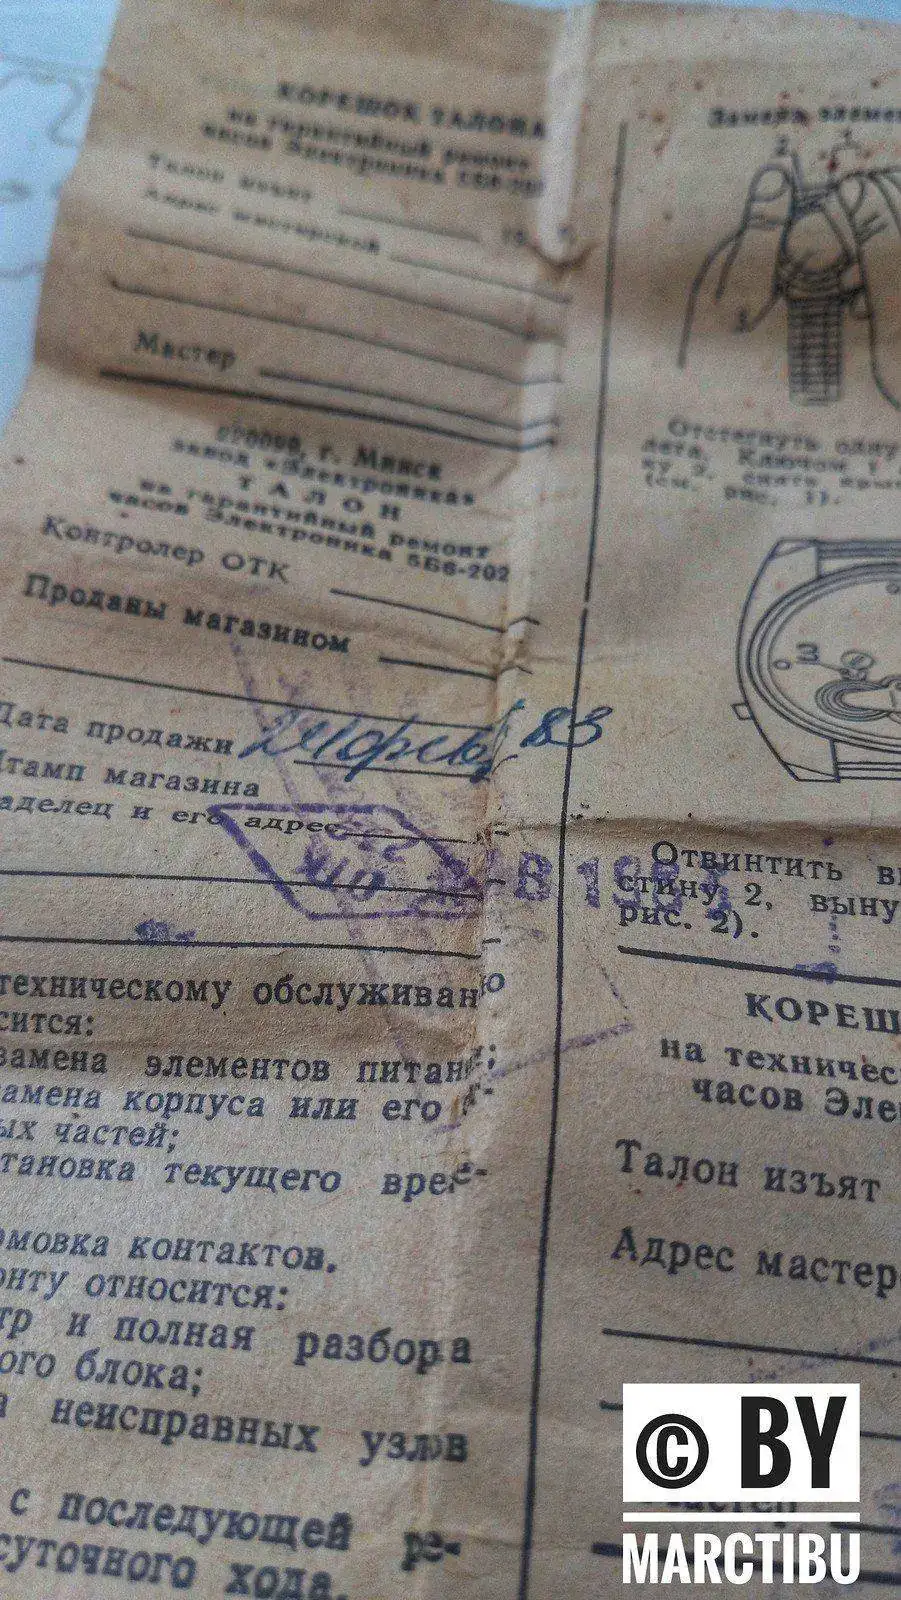 КОРЕШОК ТАЛОНА
на гарантийный ремонт
часов Электроника 5Б6-202
Талон изъят
Адрес мастерской
Мастер
220000, г. Минск
завод «Электроника»
ТАЛОН
на гарантийный ремонт
часов Электроника 5Б6-202
Контролер ОТК
Проданы магазином
Дата продажи 83
Штамп магазина
аделец и его адрес
техническому обслуживанию
сится:
замена элементов питан
замена корпуса или его
ых частей;
тановка текущего вре-
рмовка контактов.
онту относится:
тр и полная разбора
ого блока;
а неисправных узлов
с последующей ре-
суточного хода.
Замена элемен
2
1
Отстегнуть одну
лета. Ключом 1
ку 2, снять кры
(см. рис. 1).
3
Отвинтить ви
стину 2, выну
рис. 2).
КОРЕШ
на техничес
часов Эле
Талон изъят
Адрес мастер
© BY
MARCTIBU